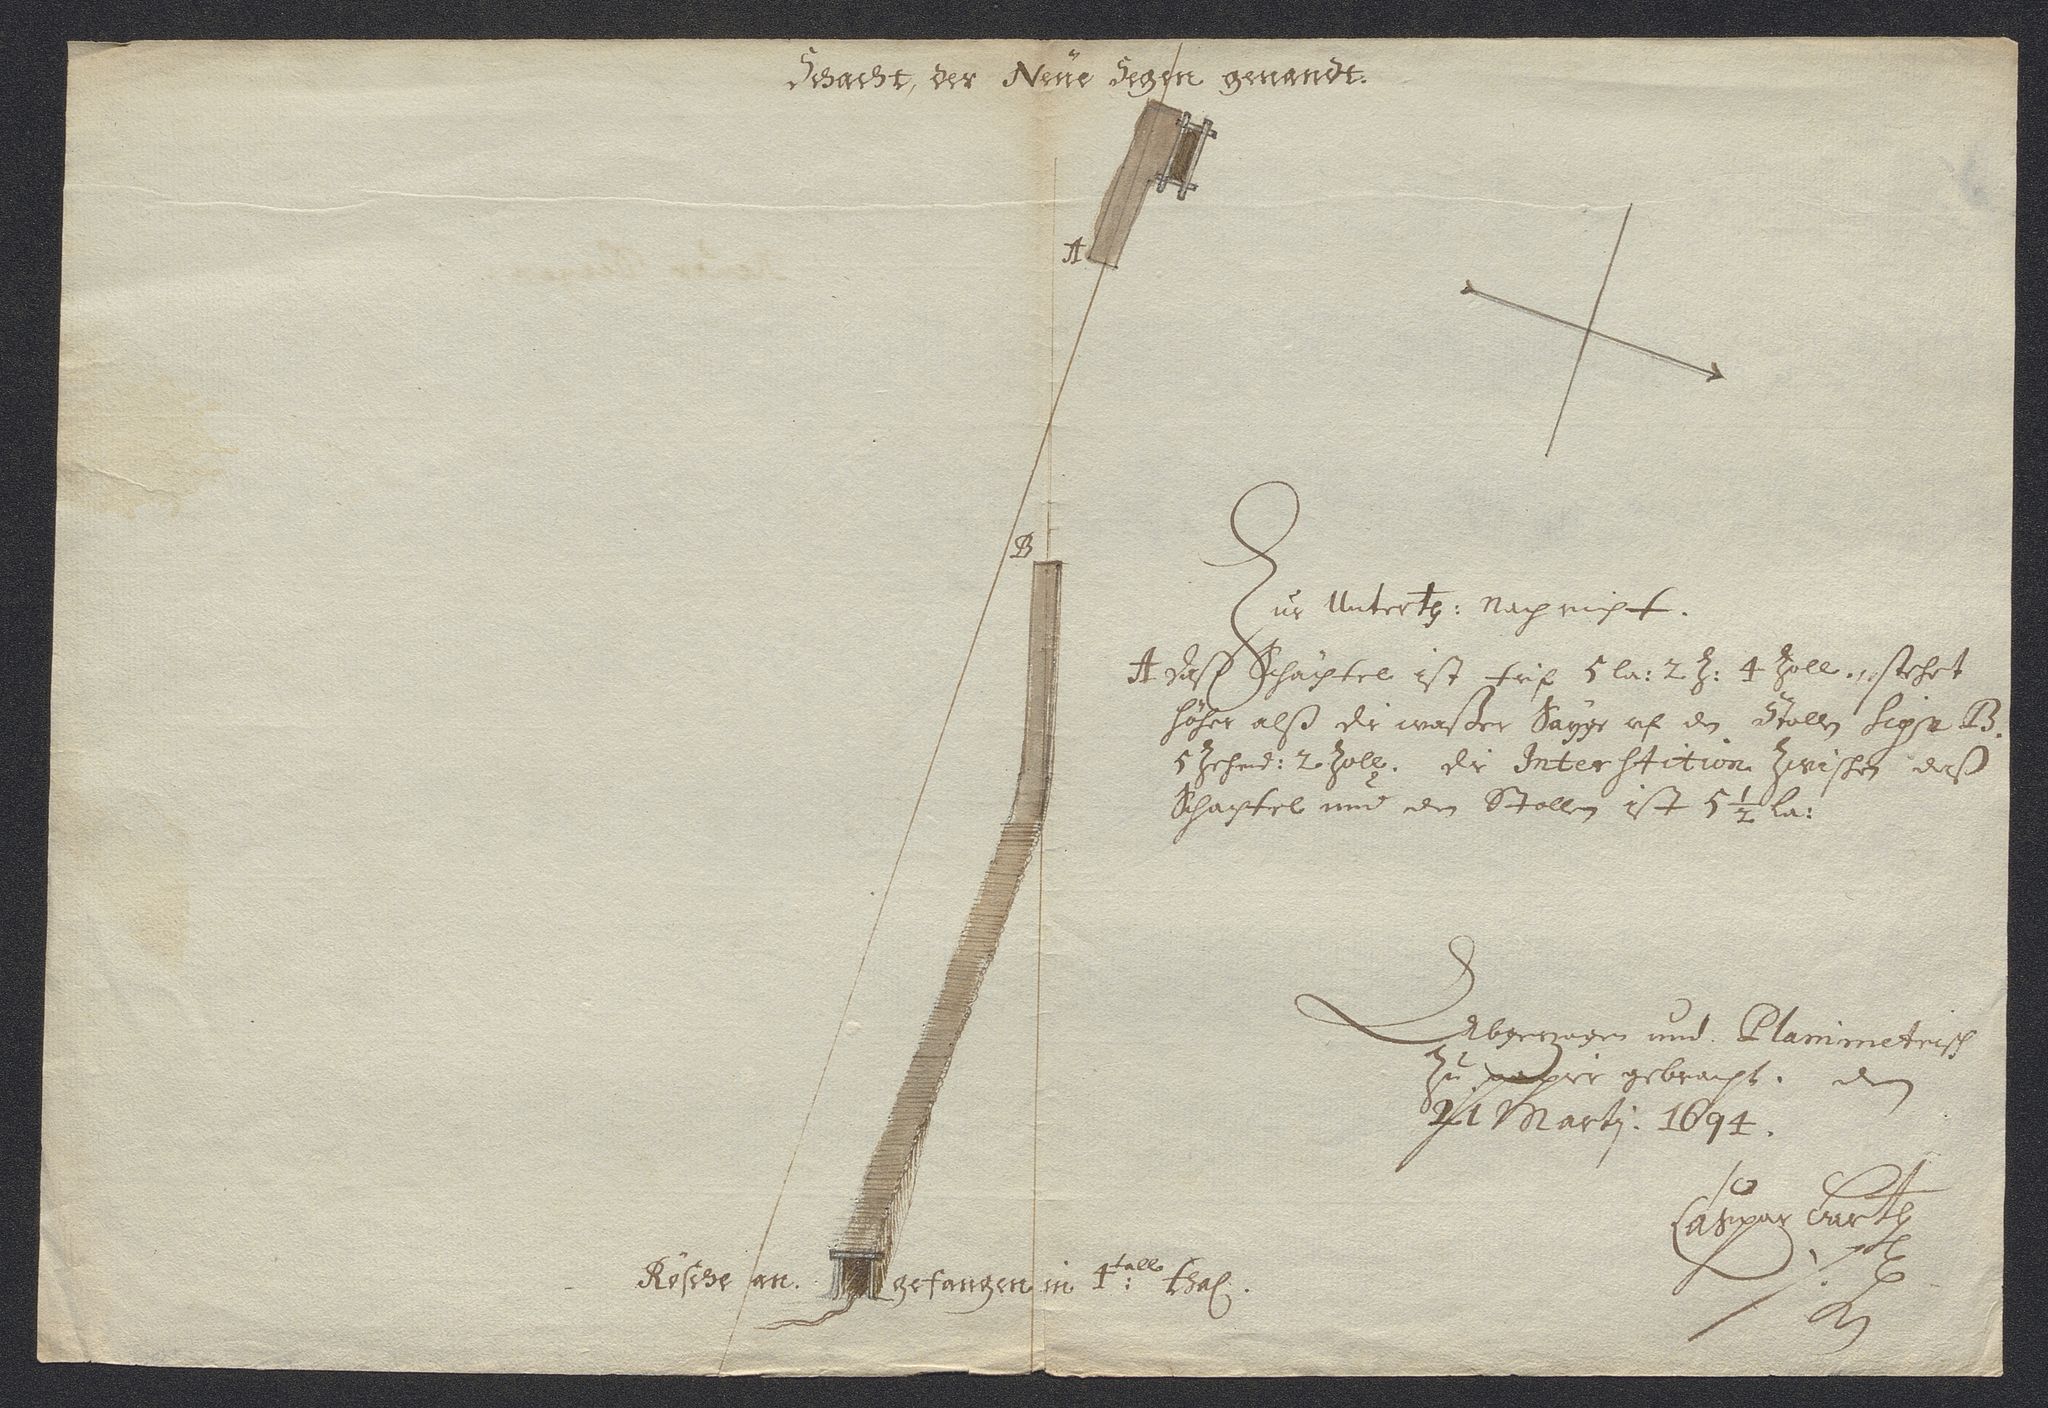 Schacht, der Neüe Segen genandt.
A
B
Zur Unterth: Nachricht.
A daß Schächtel ist tief 5 la: 2 Z: 4 Zoll., stehet
höher alß die waßer Sayge uf den Stollen Sign B.
5 Zehend: 2 Zoll. die Interstition zwischen daß
Schachtel und den Stollen ist 5 1/2 La:
Abgezogen und Planimetrisch
zu papir gebracht. den
21 Martij. 1694.
Caspar Barth
Rösche an. gefangen in 4 thal.